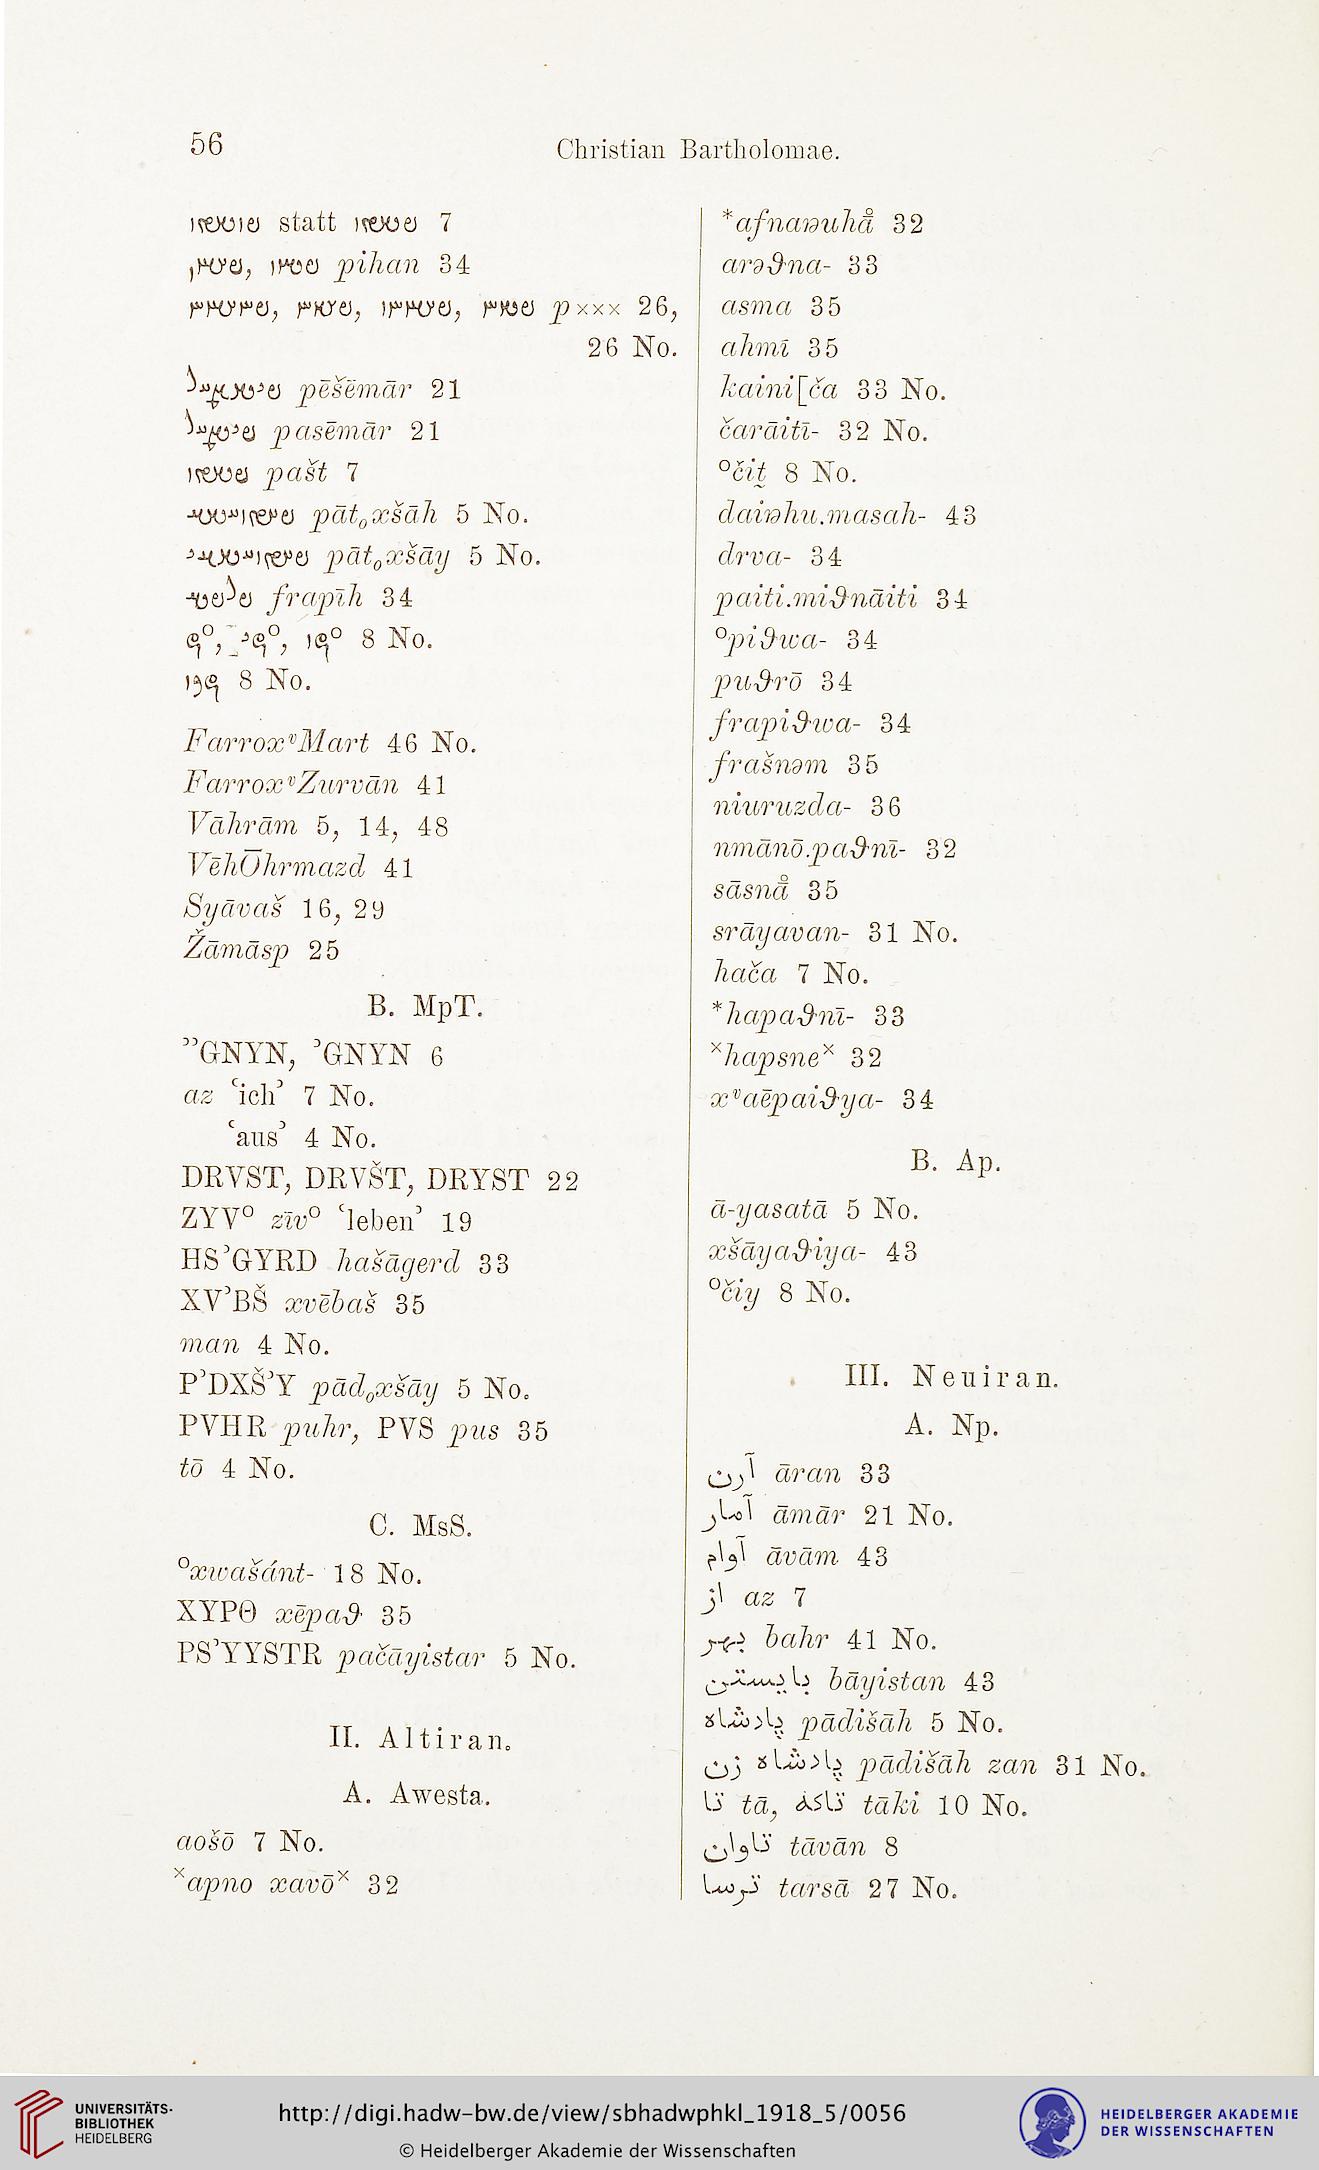 56
Christian Bartholomae.
statt 7
pihan 34
p××× 26,
26 No.
pēšēmār 21
pasēmār 21
pašt 7
pāt₀xšāh 5 No.
pāt₀xšāy 5 No.
frapīh 34
8 No.
8 No.
FarroxᵛMart 46 No.
FarroxᵛZurvān 41
Vāhrām 5, 14, 48
VēhŌhrmazd 41
Syāvaš 16, 29
Žāmāsp 25
B. MpT.
ʾʾGNYN, ʾGNYN 6
az ʿichʾ 7 No.
ʿausʾ 4 No.
DRVST, DRVŠT, DRYST 22
ZYV° zīv° ʿlebenʾ 19
HSʾGYRD hašāgerd 33
XVʾBŠ xvēbaš 35
man 4 No.
PʾDXŠʾY pād₀xšāy 5 No.
PVHR puhr, PVS pus 35
tō 4 No.
C. MsS.
°xwašánt- 18 No.
XYPΘ xēpaϑ 35
PSʾYYSTR pačāyistar 5 No.
II. Altiran.
A. Awesta.
aošō 7 No.
ˣapno xavōˣ 32
*afnaɴuhā̊ 32
arəϑna- 33
asma 35
ahmī 35
kaini[ča 33 No.
čarāitī- 32 No.
°čit̰ 8 No.
daiɴhu.masah- 43
drva- 34
paiti.miϑnāiti 34
°piϑwa- 34
puϑrō 34
frapiϑwa- 34
frašnəm 35
niuruzda- 36
nmānō.paϑnī- 32
sāsnā̊ 35
srāyavan- 31 No.
hača 7 No.
*hapaϑnī- 33
ˣhapsneˣ 32
xᵛaēpaiϑya- 34
B. Ap.
ā-yasatā 5 No.
xšāyaϑiya- 43
°čiy 8 No.
III. Neuiran.
A. Np.
آرن āran 33
آمار āmār 21 No.
آوام āvām 43
از az 7
بهر bahr 41 No.
بايستن bāyistan 43
پادشاه pādišāh 5 No.
پادشاه زن pādišāh zan 31 No.
تا tā, تاكه tāki 10 No.
تاوان tāvān 8
ترسا tarsā 27 No.
UNIVERSITÄTS-
BIBLIOTHEK
HEIDELBERG
http://digi.hadw-bw.de/view/sbhadwphkl_1918_5/0056
© Heidelberger Akademie der Wissenschaften
HEIDELBERGER AKADEMIE
DER WISSENSCHAFTEN